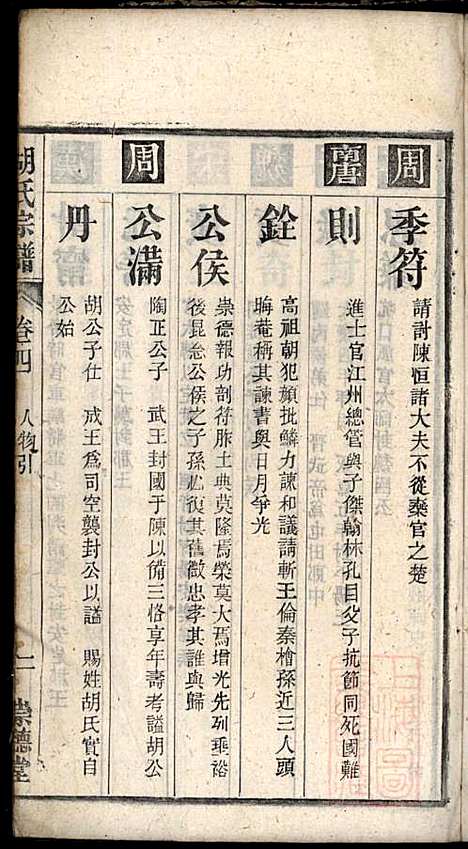 周
季符
請討陳恒諸大夫不從棄官之楚
南唐
則
進士官江州總管與子傑翰林孔目父子抗節同死國難
銓
高祖朝犯顏批鱗力諫和議請斬王倫秦檜孫近三人頭
晦菴稱其諫書與日月爭光
公侯
崇德報功剖符胙土典莫隆焉榮莫大焉增光先列垂裕
後昆念公侯之子孫必復其舊徵忠孝其誰與歸
周
公滿
陶正公子 武王封國于陳以備三恪享年壽考謚胡公
丹
胡公子仕 成王爲司空襲封公以謚 賜姓胡氏實自
公始
胡氏宗譜
卷四
人物引
二
崇德堂